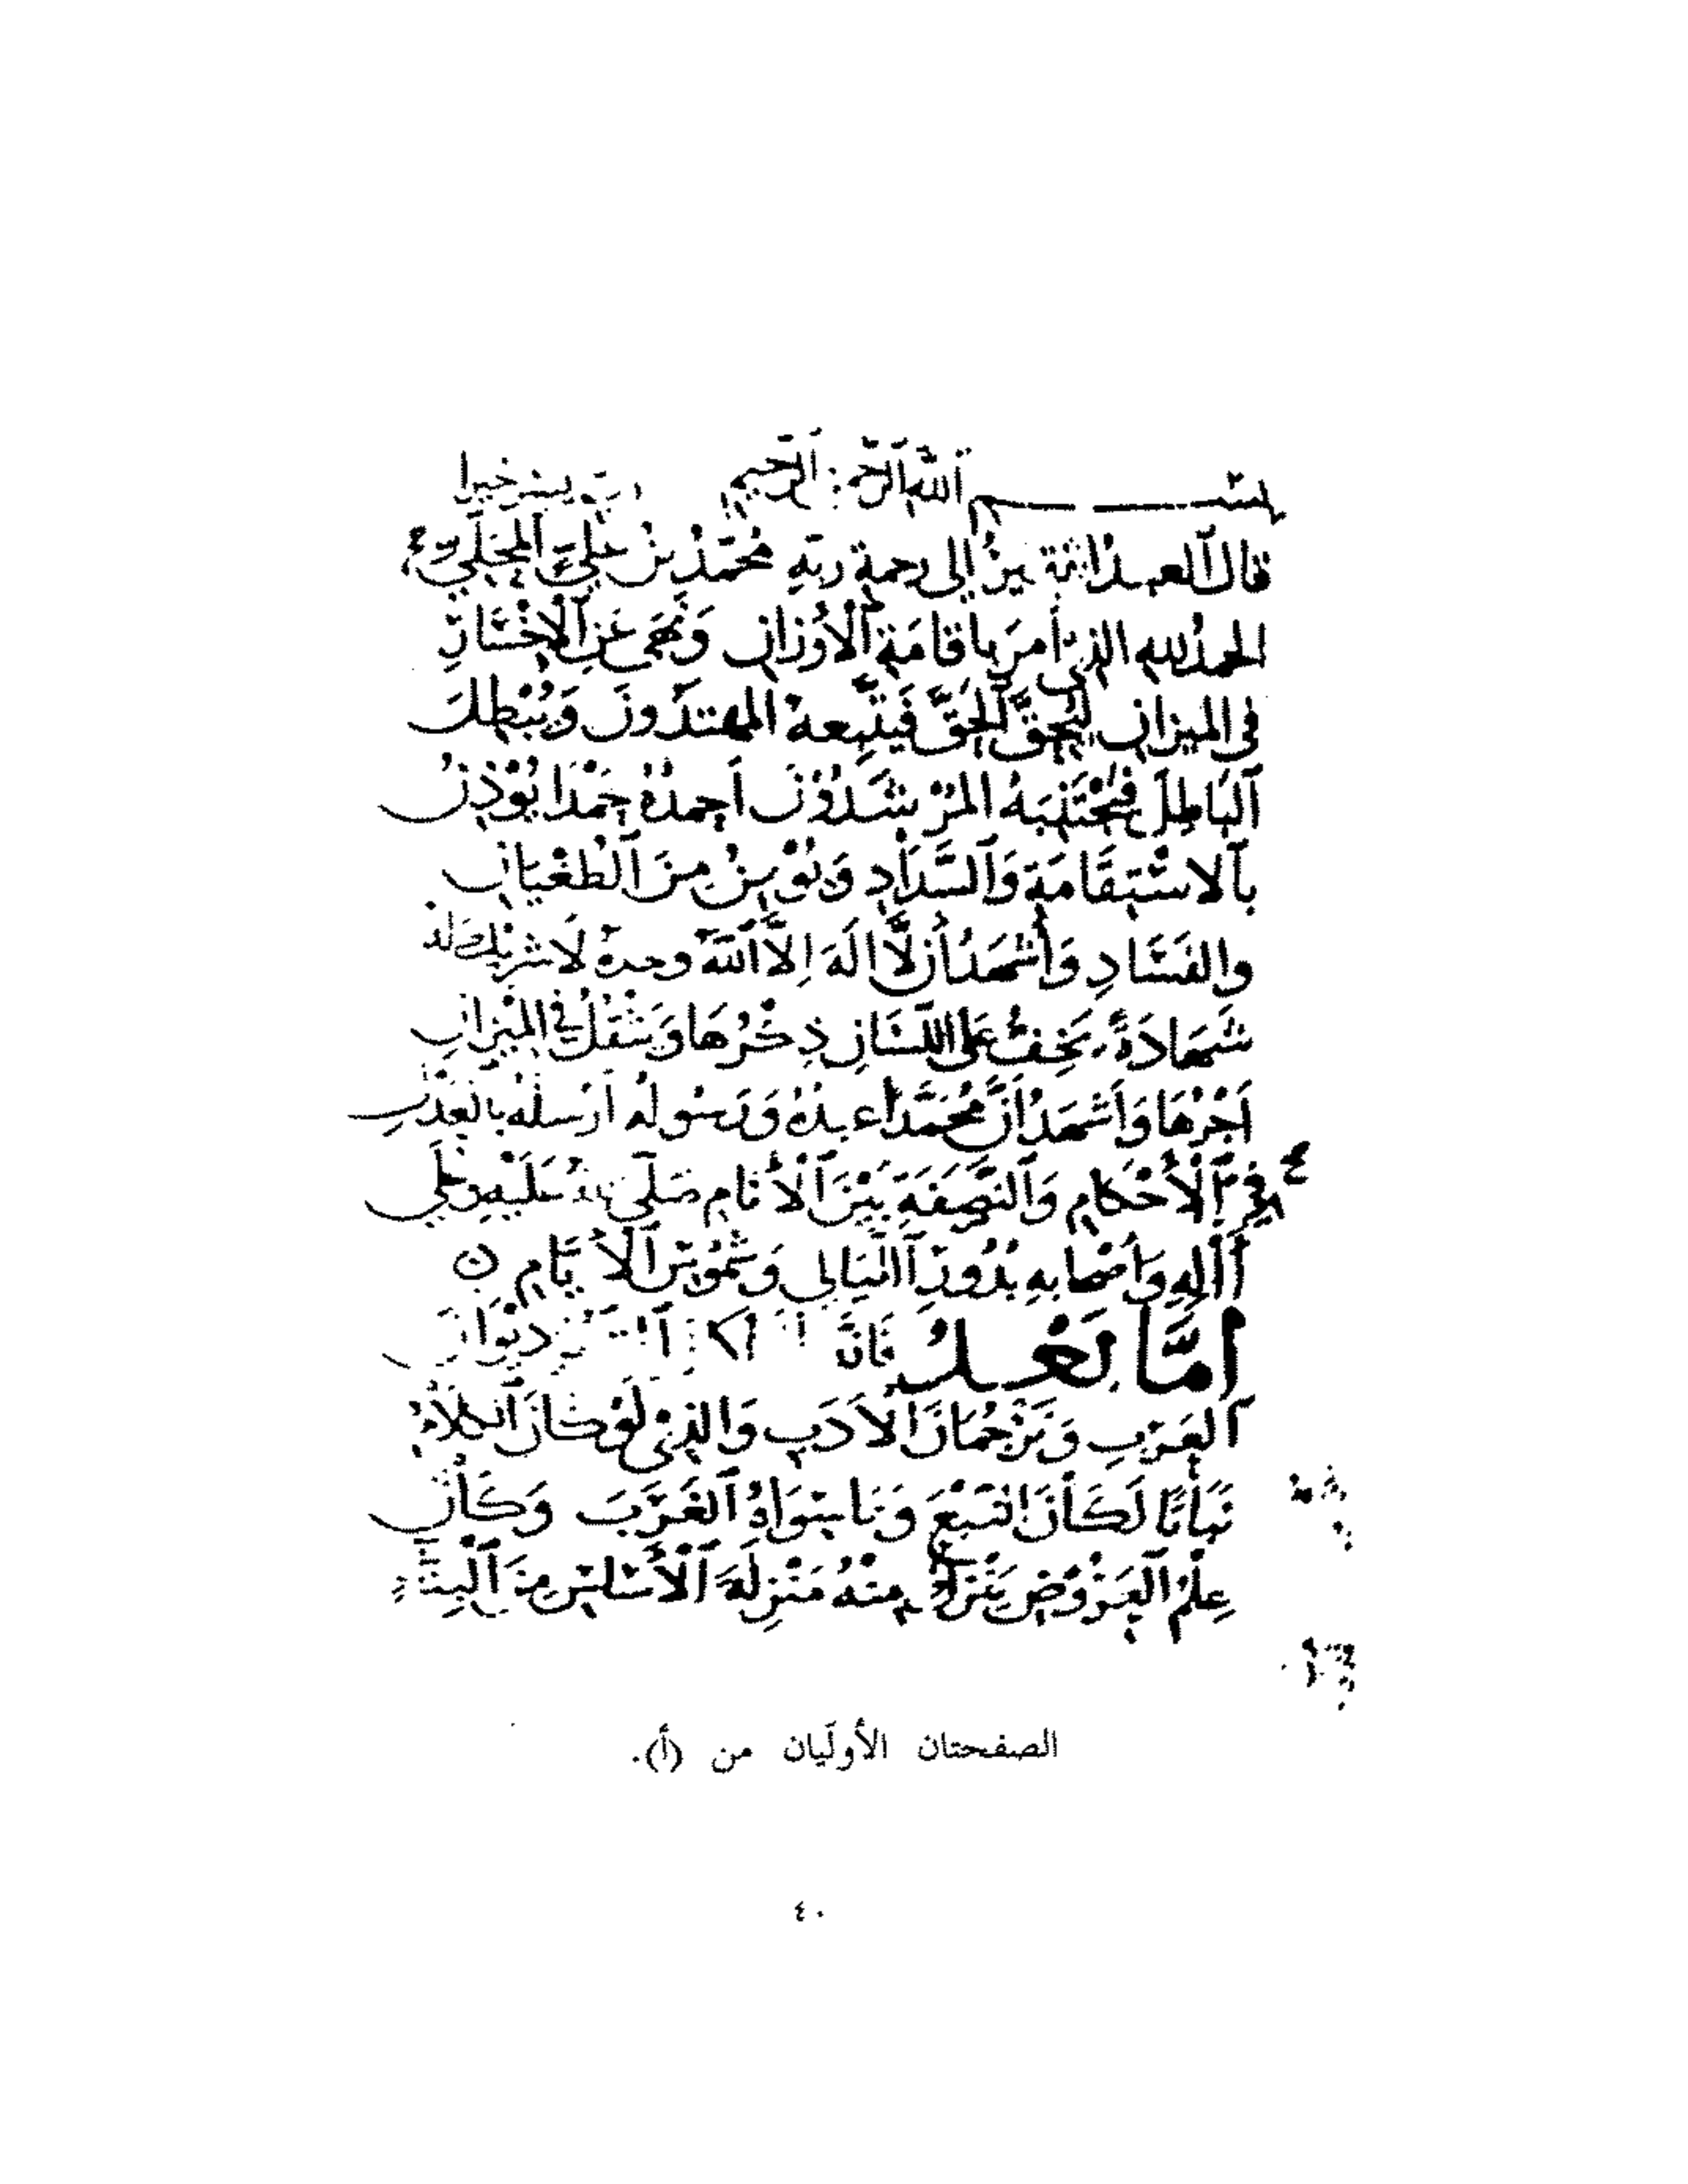 بسم الله الرحمن الرحيم رب يسر خيرا
قال العبد الفقير إلى رحمة ربه محمد بن علي المحلي
الحمد لله الذي أمر باقامة الأوزان ونهى عن الإخسار
في الميزان ليحق الحق فيتبعه المهتدون ويبطل
الباطل فيجتنبه المرشدون احمده حمدا يؤذن
بالاستقامة والسداد ويؤمن من الطغيان
والفساد واشهد أن لا اله الا الله وحده لا شريك له
شهادة يخف على اللسان ذكرها ويثقل في الميزان
اجرها واشهد ان محمدا عبده ورسوله ارسله بالعدل
في الأحكام والنصفة بين الأنام صلى الله عليه وعلى
آله واصحابه بدور الليالي وشموس الأيام
اما بعد فان ديوان
العرب وترجمان الأدب والذي لو كان الكلام
نباتا لكان النبع وما سواه الغرب وكان
علم العروض ينزل منه منزلة الأساس من البناء
الصفحتان الأوليان من (أ).
٤٠